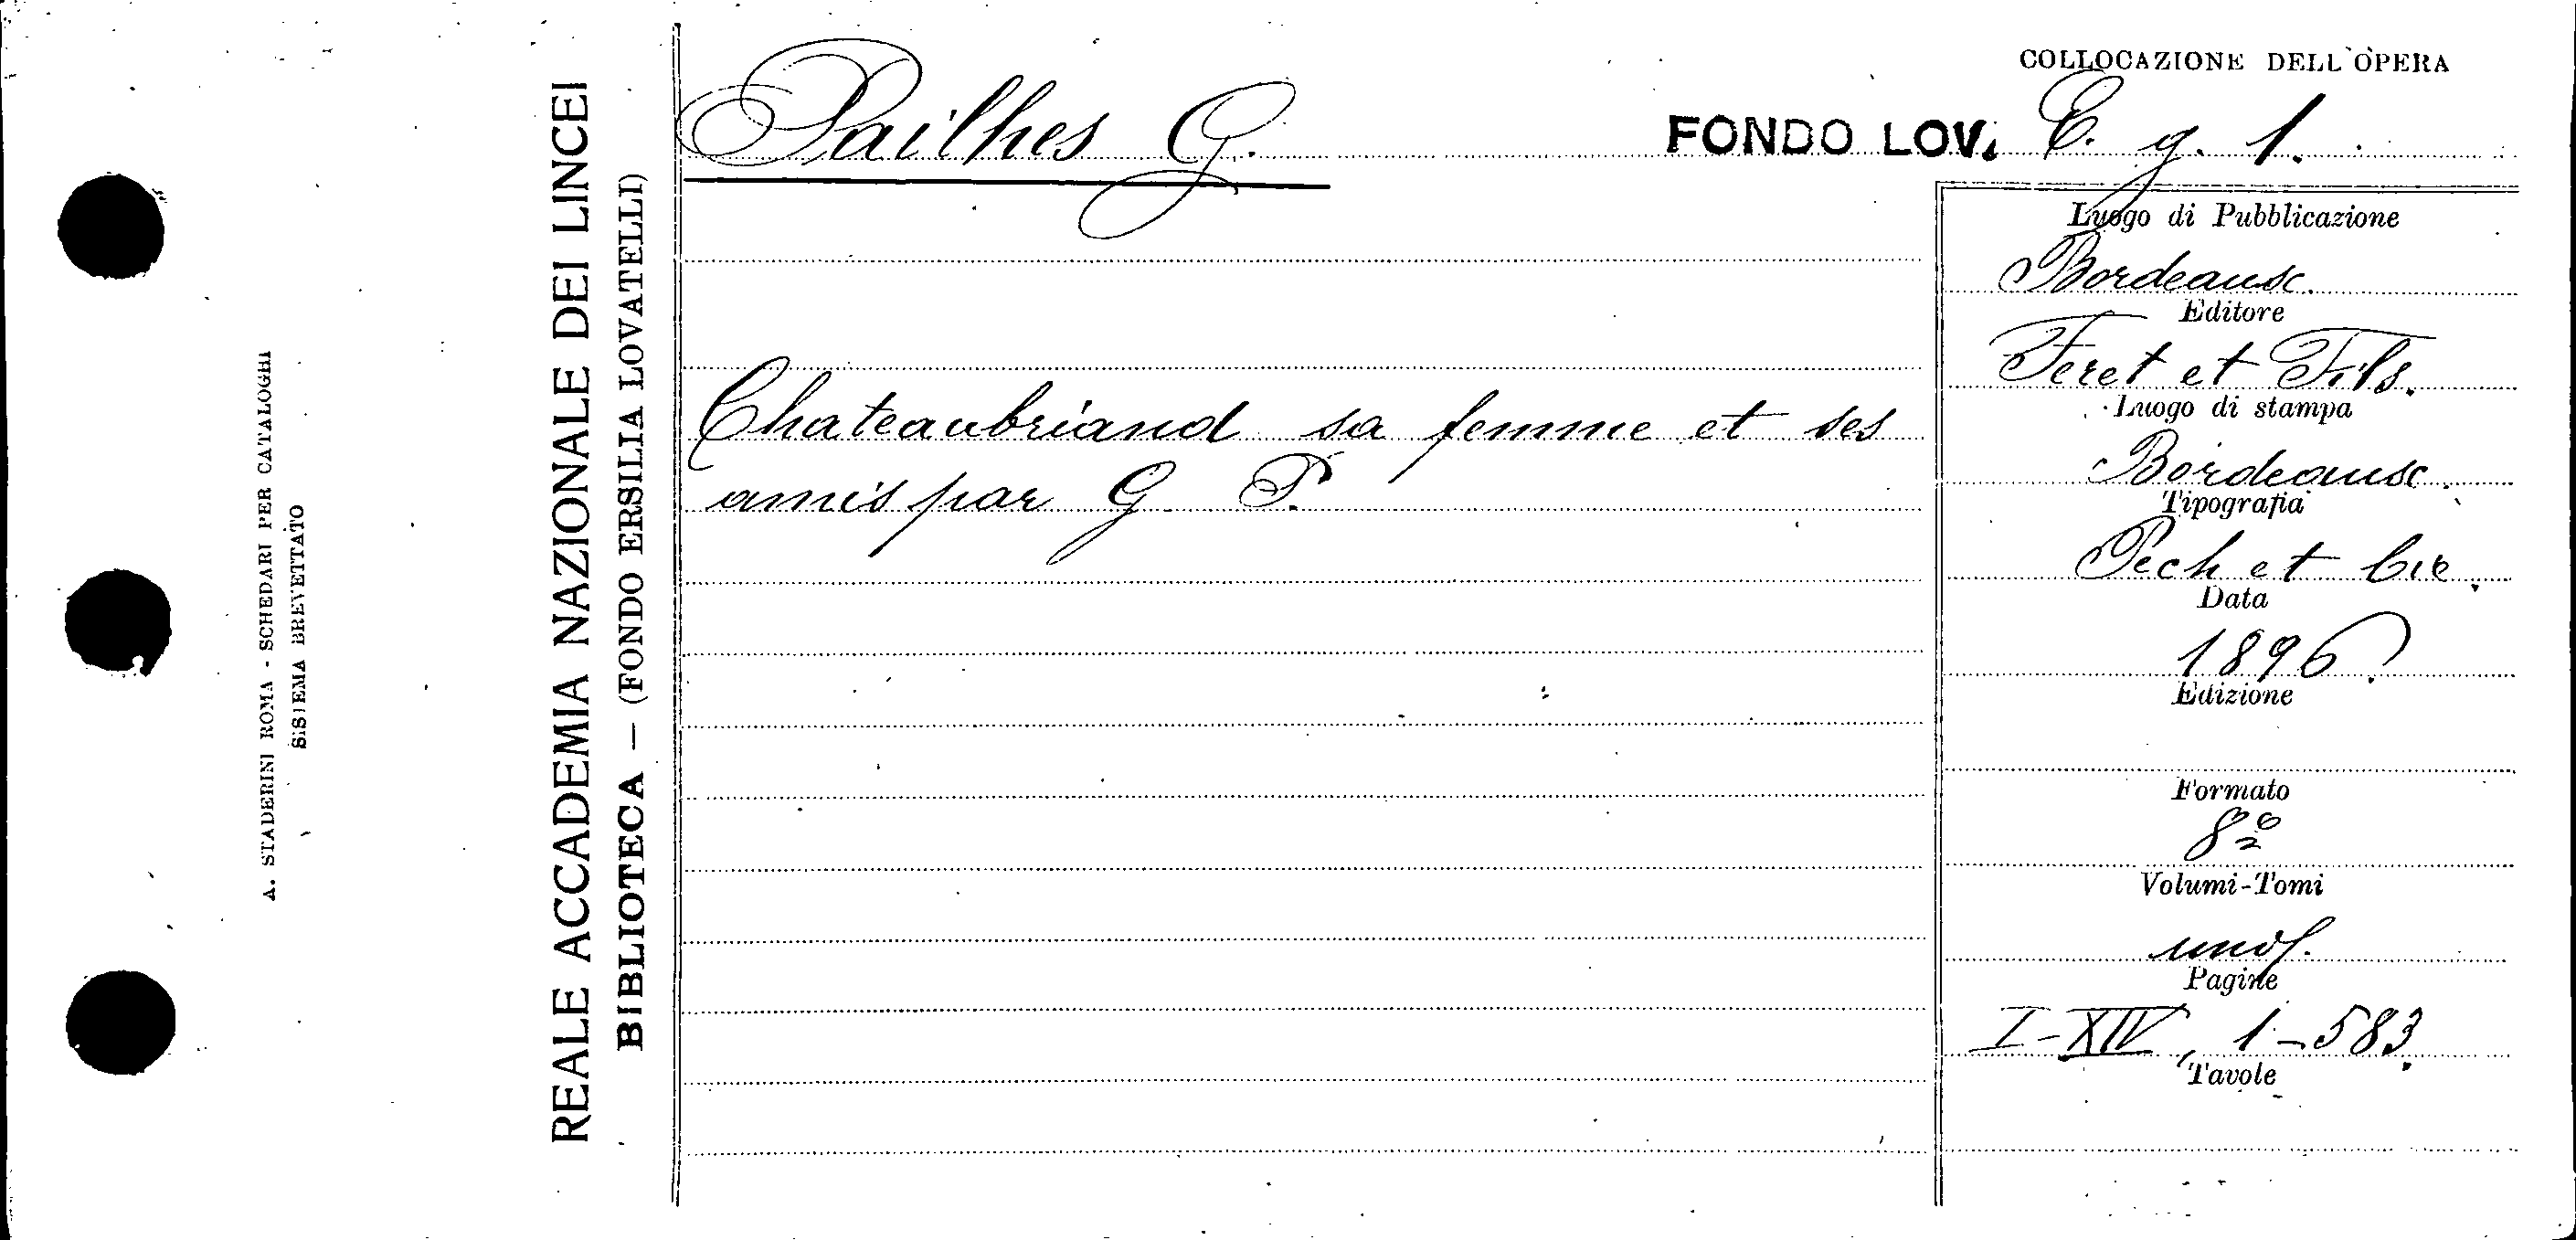 A. STADERINI ROMA - SCHEDARI PER CATALOGHI
SISTEMA BREVETTATO
REALE ACCADEMIA NAZIONALE DEI LINCEI
BIBLIOTECA — (FONDO ERSILIA LOVATELLI)
Pailhes G.
COLLOCAZIONE DELL'OPERA
FONDO LOV. E. g. 1.
Chateaubriand sa femme et ses
amis par G P.
Luogo di Pubblicazione
Bordeaux.
Editore
Feret et Fils.
Luogo di stampa
Bordeaux.
Tipografia
Pech et Cie.
Data
1896
Edizione
Formato
8º
Volumi-Tomi
uno.
Pagine
I-XIV, 1-583.
Tavole